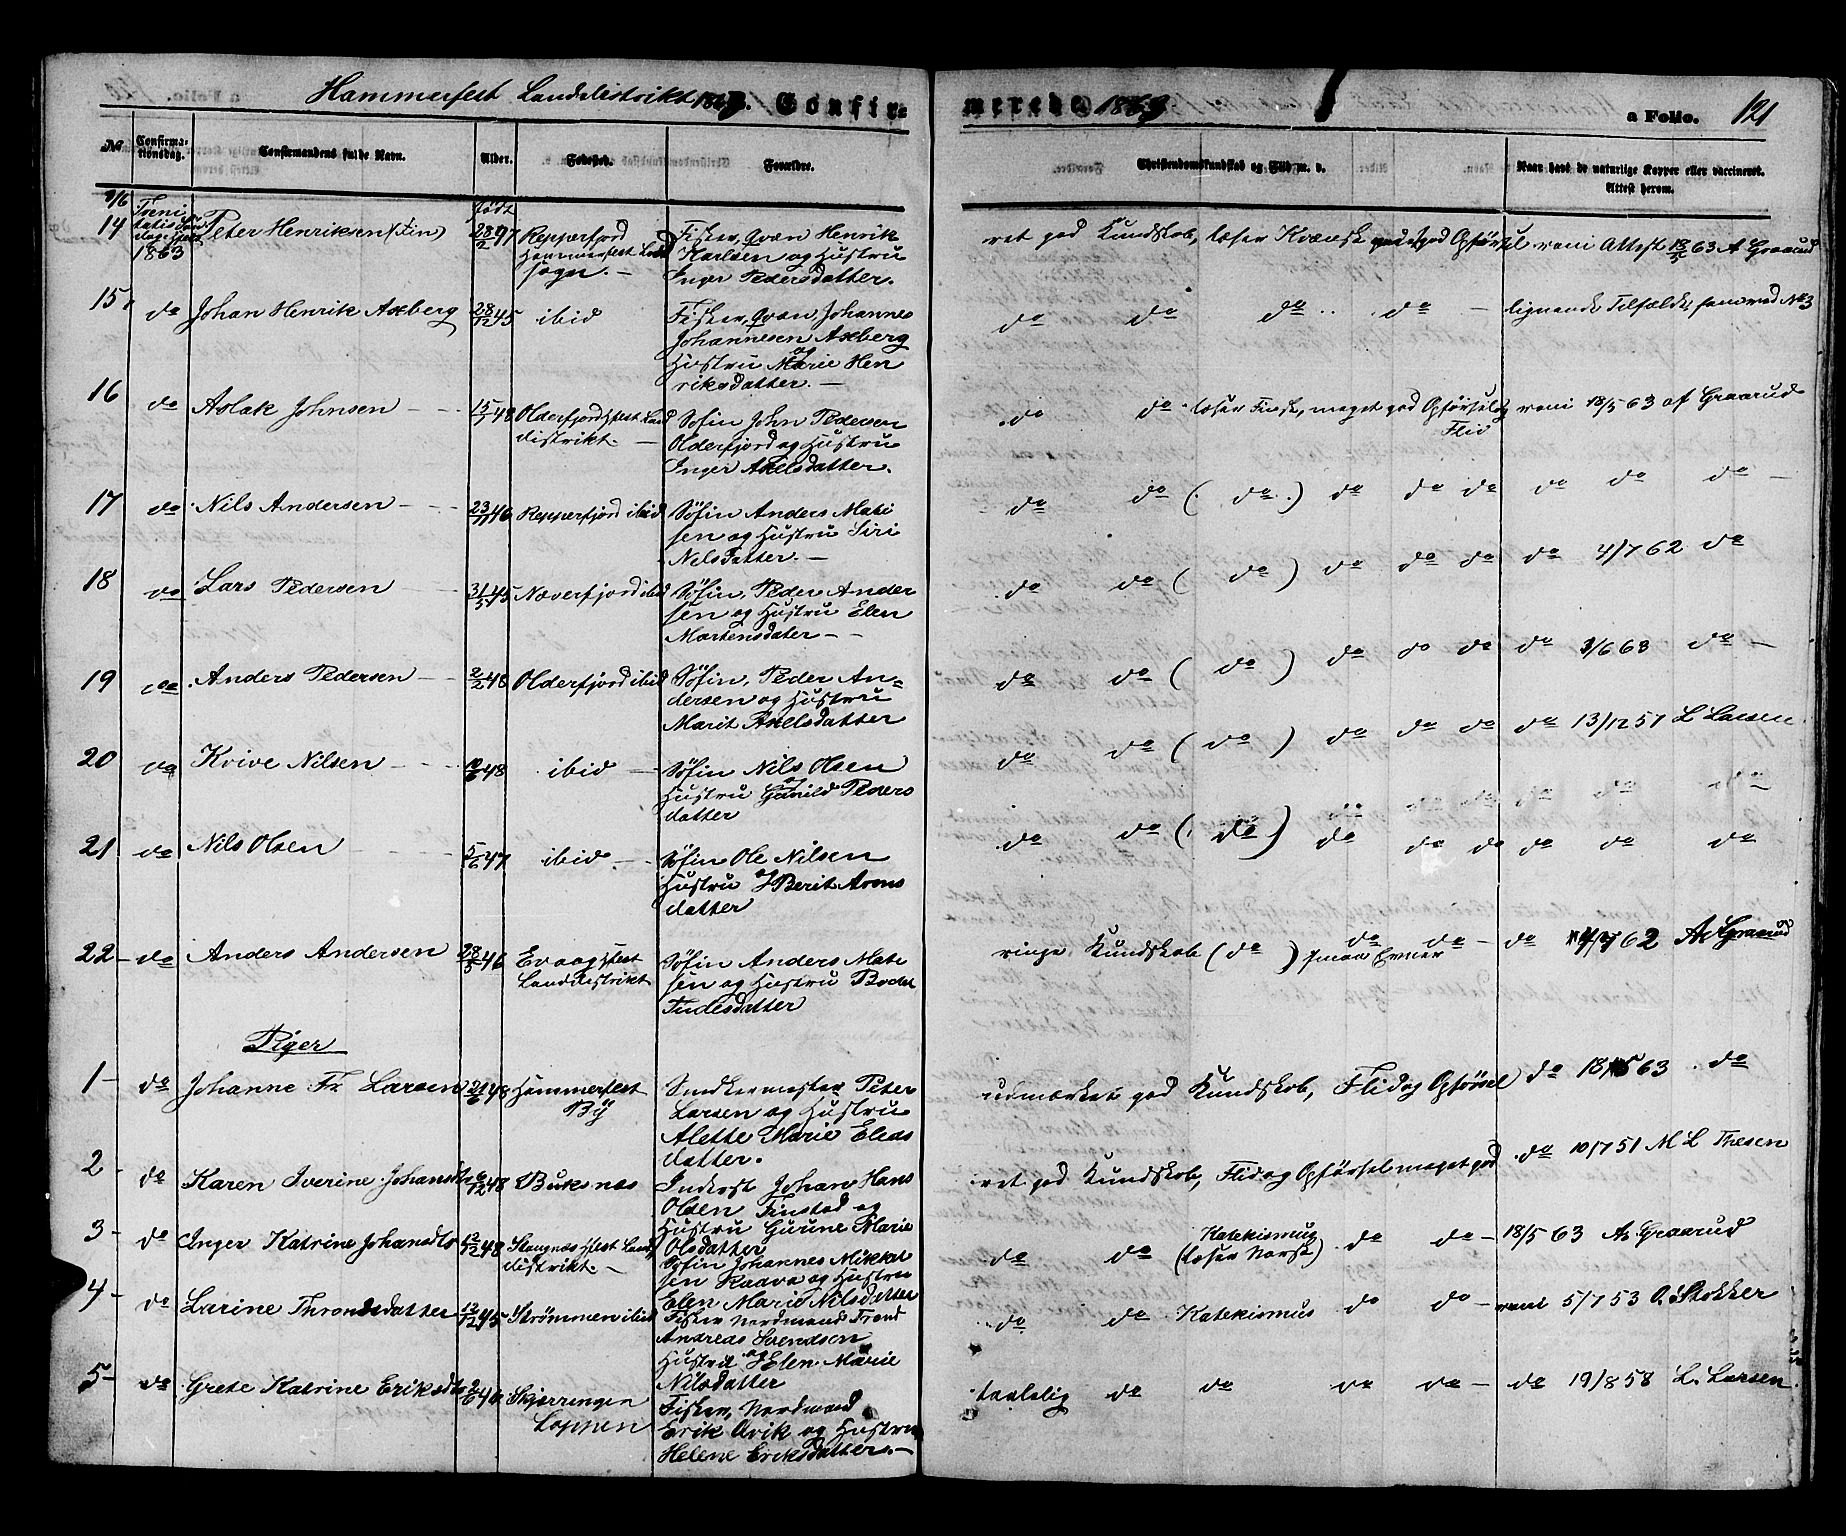 Hammerfest Landdistrikt 1863. Confir=
merede 1863 a Folio. 121
No Confirma-
tionsdag. Confirmandens fulde Navn. Alder. Fødested. Forældre. Christendomskundskab og Flid m. v. Naar havt de naturlige Kopper eller vaccineret.
Attest herom.
14 Peter Henriksen (Fin) født 28/2 47 Repperfjord Fisker, Qvæn Henrik ret god Kundskab, læser Kvænsk god Opførsel vac: Attest 18/5 63 A Graarud
1863 Hammerfest Land Karlsen og Hustru
sogn. — Inger Pedersdatter.
15 do Johan Henrik Axberg 28/12 45 ibid Fisker, Qvæn, Johannes do do do do — lignende Tilfælde, som ved No 3
Johannesen Axberg
og Hustru Marie Hen
riksdatter. —
16 do Aslak Johnsen 15/7 48 Olderfjord Hfest Land Søfin John Pedersen do do læser Finsk, meget god Opførsel og vac: 18/5 63 af Graarud
distrikt. — Olderfjord og Hustru Flid
Inger Axelsdatter.
17 do Nils Andersen 23/11 46 Repperfjord ibid Søfin Anders Mati do do (do) do do do do do do —
sen og Hustru Siri
Nilsdatter. —
18 do Lars Pedersen 31/5 45 Næverfjord ibid Søfin, Peder Ander do do (do) do do do do 4/7 62 do
sen og Hustru Elen
Martensdater —
19 do Anders Pedersen 2/2 48 Olderfjord ibid Søfin, Peder An= do do (do) do do do do 3/6 63 do —
dersen og Hustru
Marit Axelsdatter
20 do Krive Nilsen 10/6 48 ibid — Søfin Nils Olsen do do (do) do do do do 13/12 51 L Larsen
og Hustru Gunild Peders
datter
21 do Nils Olsen 5/6 47 ibid — Søfin Ole Nilsen do do (do) do do do do do do
og Hustru Berit Arons
datter
22 — do Anders Andersen 28/5 46 Hfest Søfin Anders Mati ringe Kundskab (do) do do — do 4/7 62 A Graarud
Landdistrikt sen og Hustru Bodel

Piger
1 — do Johanne Fr Larsen 21/6 48 Hammerfest Peter udmærket god Kundskab, Flid og Opførsel do 18/5 63 do
By Larsen og Hustru
Alette Marie Elias
datter.
2 — do Karen Iverine Johansdtr 6/12 48 Buksnæs Inderst Johan Hans ret god Kundskab, Flid og Opførsel meget god do 10/7 51 M L Thesen
Olsen Finstad og
Hustru Gunne Marie
Olsdatter
3 — do Inger Katrine Johansdtr 12/12 48 Stangnæs Hfest Land Søfin Johannes Mikkel do do Katekismus (læser Norsk) do do — 18/5 63 A Graarud
distrikt. — sen Kaava og Hustru
Elen Marie Nilsdatter
4 — do Larine Throndsdatter 13/12 45 Strømmen ibid Fisker Nordmand Trond do do Katekismus do do — vac: 5/7 53 O. Stokker
Andreas Svendsen
og Hustru Elen Marie
Nilsdatter
5 — do Grete Katrine Eriksdtr 2/6 46 Skjerringen Fisker, Nordmand taalelig do do do do — do 19/8 58 L. Larsen
Loppen Erik Qvik og Hustru
Helene Eriksdatter. —